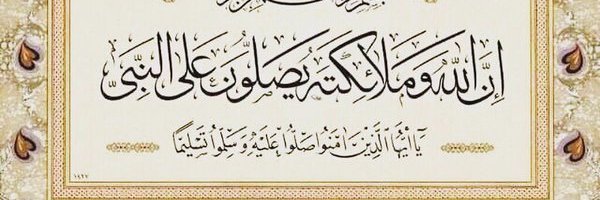 إِنَّ اللَّهَ وَمَلَائِكَتَهُ يُصَلُّونَ عَلَى النَّبِيِّ
يَا أَيُّهَا الَّذِينَ آمَنُوا صَلُّوا عَلَيْهِ وَسَلِّمُوا تَسْلِيمًا